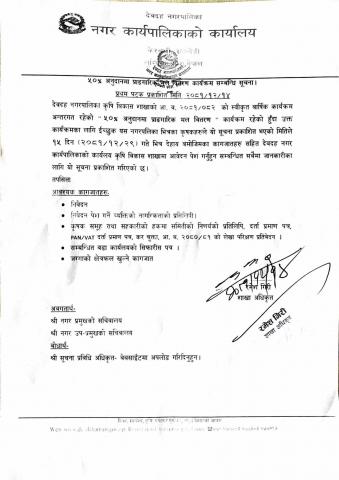 देवदह नगरपालिका
नगर कार्यपालिकाको कार्यालय
५०% अनुदानमा प्राङगारिक मल वितरण कार्यक्रम सम्बन्धि सूचना।
प्रथम पटक प्रकाशित मिति २०८१/१२/१४
देवदह नगरपालिका कृषि विकास शाखाको आ. व. २०८१/०८२ को स्वीकृत वार्षिक कार्यक्रम
अन्तरगत रहेको "५०% अनुदानमा प्राङगारिक मल वितरण" कार्यक्रम रहेको हुँदा उक्त
कार्यक्रमका लागि ईच्छुक यस नगरपालिका भित्रका कृषकहरुले यो सूचना प्रकाशित भएको मितिले
१५ दिन (२०८१/१२/२९) गते भित्र देहाय बमोजिमका कागजातहरु सहित देवदह नगर
कार्यपालिकाको कार्यालय कृषि विकास शाखामा आवेदन पेश गर्नुहुन सम्बन्धित सर्वमा जानकारीका
लागि यो सूचना प्रकाशित गरिएको छ।
तपसिल
आवश्यक कागजातहरु:
• निवेदन
• निवेदन पेश गर्ने व्यक्तिको नागरिकताको प्रतिलिपी।
• कृषक समुह तथा सहकारीको हकमा समितीको निर्णयको प्रतिलिपि, दर्ता प्रमाण पत्र,
PAN/VAT दर्ता प्रमाण पत्र, कर चुक्ता, आ. व. २०८०/८१ को लेखा परिक्षण प्रतिवेदन ।
• सम्बन्धित वडा कार्यालयको सिफारीस पत्र ।
• जग्गाको क्षेत्रफल खुल्ने कागजात
रमेश गिरी
शाखा अधिकृत
रमेश गिरी
शाखा अधिकृत
अवगतार्थ:-
श्री नगर प्रमुखको सचिवालय
श्री नगर उप-प्रमुखको सचिवालय
बोधार्थ:-
श्री सूचना प्रविधि अधिकृत- वेबसाईटमा अपलोड गरिदिनुहुन।